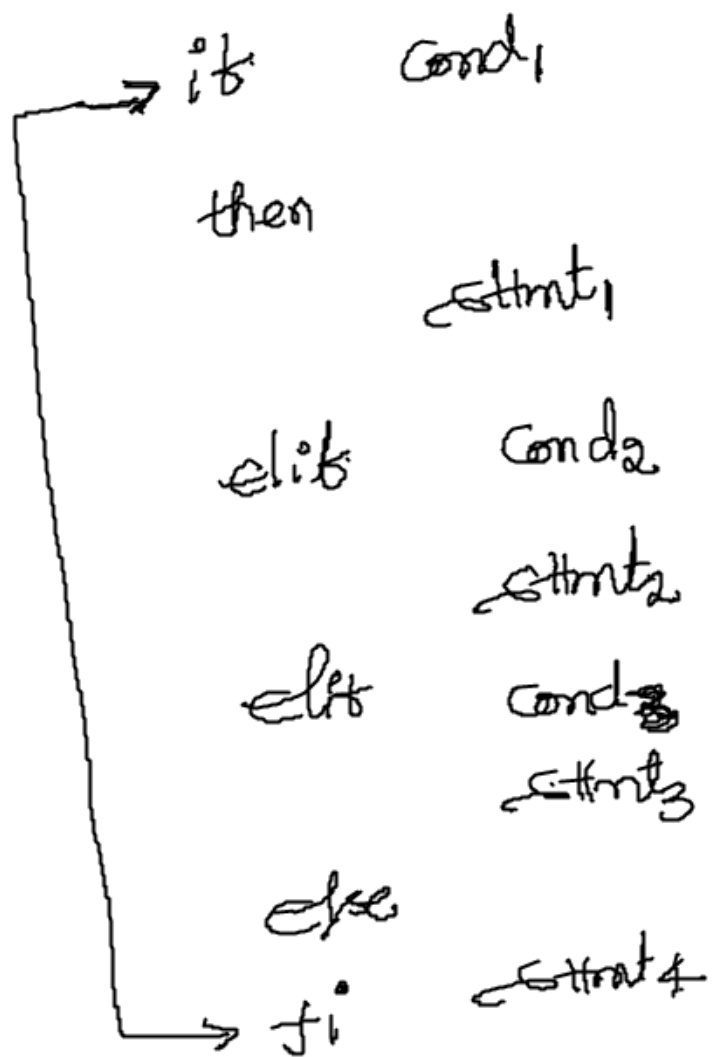 if cond1
then
stmt1
elif cond2
stmt2
elif cond3
stmt3
else
stmt4
fi